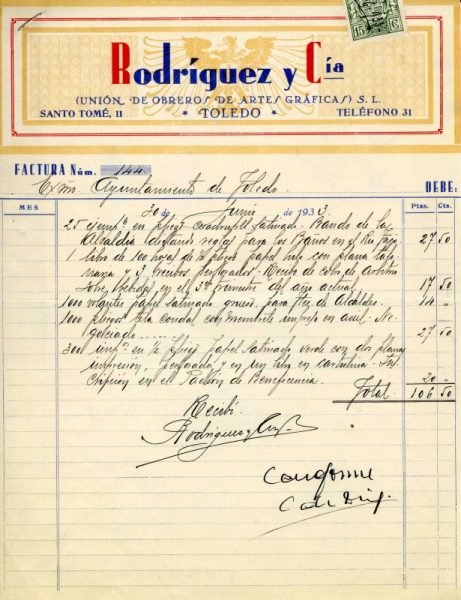 Rodríguez y Cía
(UNIÓN DE OBREROS DE ARTES GRÁFICAS) S. L.
SANTO TOMÉ, 11 * TOLEDO * TELÉFONO 31
15 C
FACTURA Núm. 144
Excmo. Ayuntamiento de Toledo. DEBE:
MES Ptas. Cts.
30 de Junio de 1933.
25 ejemp. en pliego cuadruple satinado. Bando de la
Alcaldía dictando reglas para los Baños en el Río Tajo 27 50
1 libro de 100 hojas de ½ pliego papel hilo con
y 3 recibos perforados. Recibo de
bebidas, en el 3er trimestre del año actual 17 50
1000 volantes papel satinado grueso, para Ttes. de Alcaldes. 14 "
1000 pliegos tela condal con membrete impreso en azul. Ne-
gociado 27 50
300 imp. en ½ pliego papel satinado verde con dos planas
impresión, perforados y en un libro en cartulina. Ins-
cripción en el Padrón de Beneficencia. 20 "
Total 106 50
Recibí
Rodríguez y Cía
Conforme